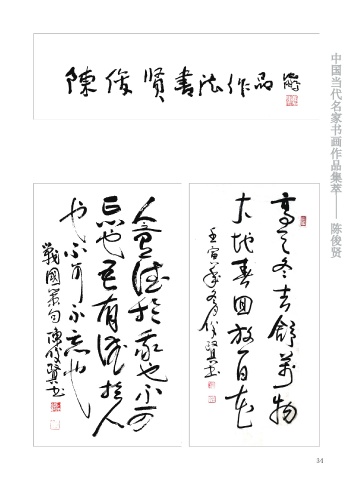 陳俊贤書法作品
中国当代名家书画作品集萃——陈俊贤
高天冬去舒萬物
大地春回放百花
壬寅年冬月俊賢書
人之有德於我也不可
忘也吾有德於人
也不可不忘也
戰國策句陳俊賢書
34